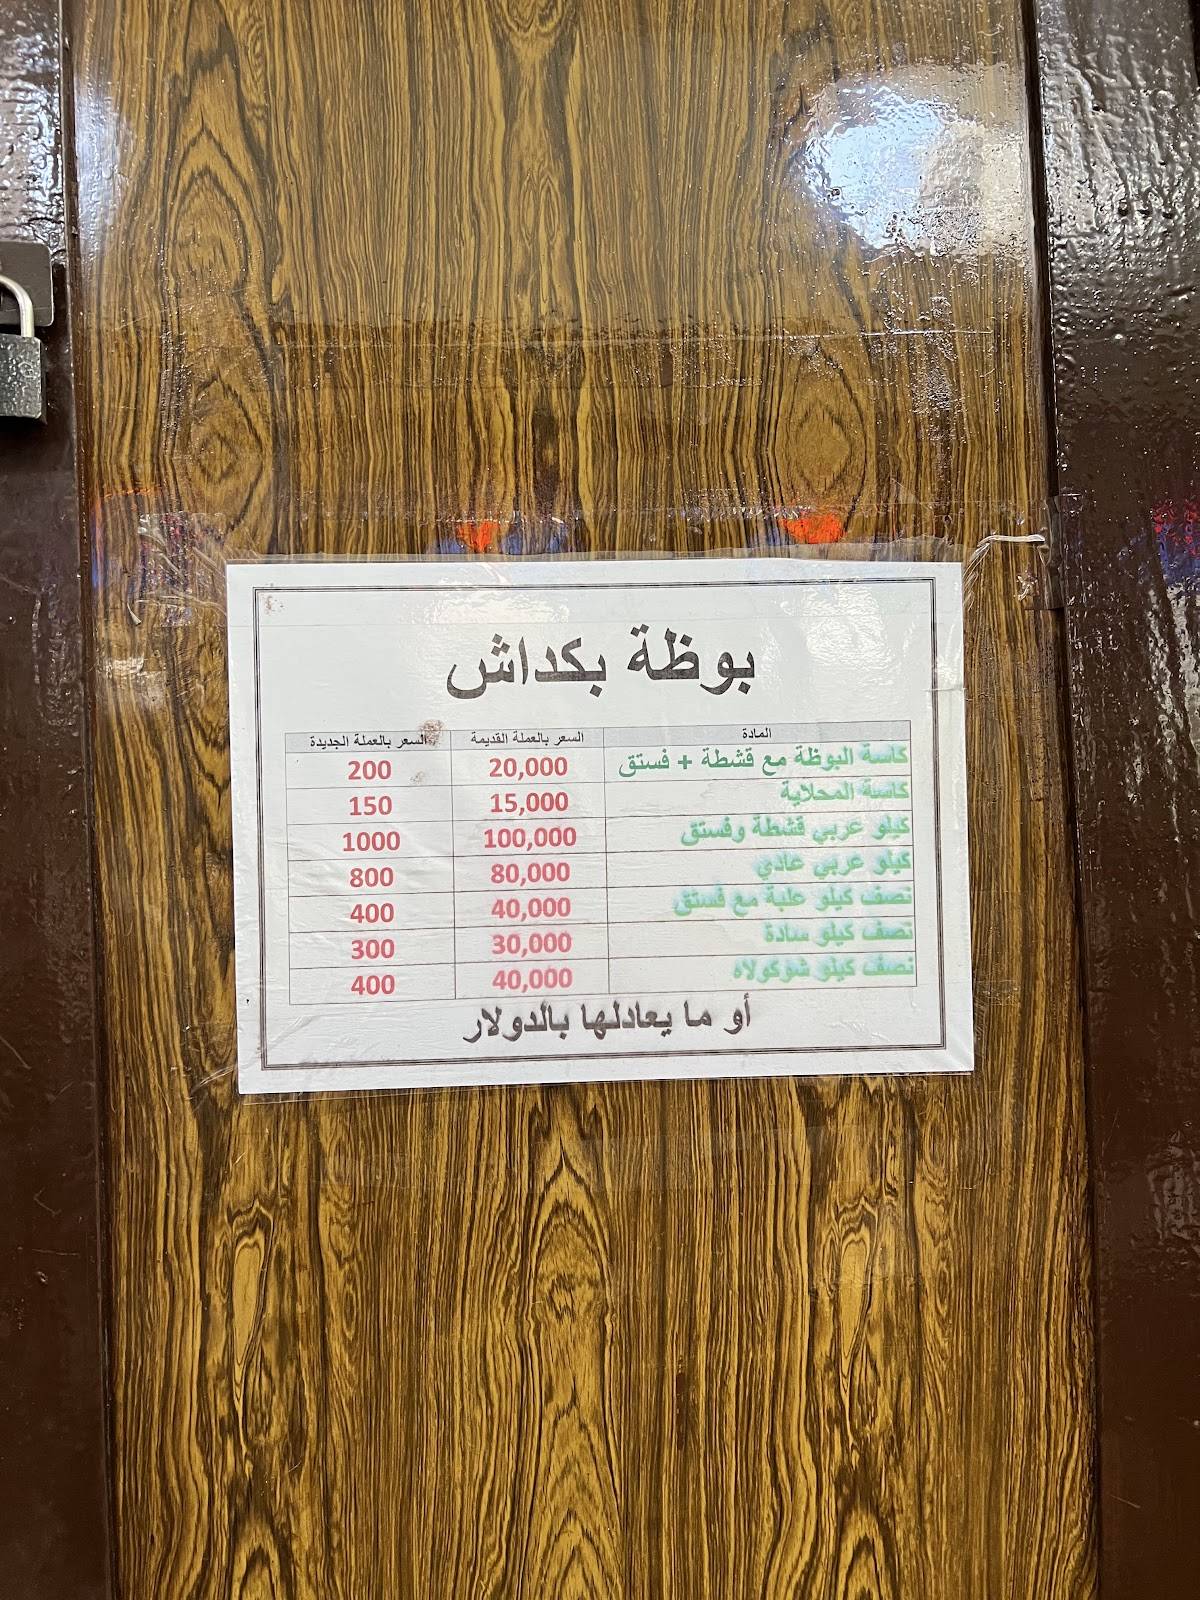 بوظة بكداش
المادة السعر بالعملة القديمة السعر بالعملة الجديدة
كاسة البوظة مع قشطة + فستق 20,000 200
كاسة المحلاية 15,000 150
كيلو عربي قشطة وفستق 100,000 1000
كيلو عربي عادي 80,000 800
نصف كيلو علبة مع فستق 40,000 400
نصف كيلو سادة 30,000 300
نصف كيلو شوكولاه 40,000 400
أو ما يعادلها بالدولار